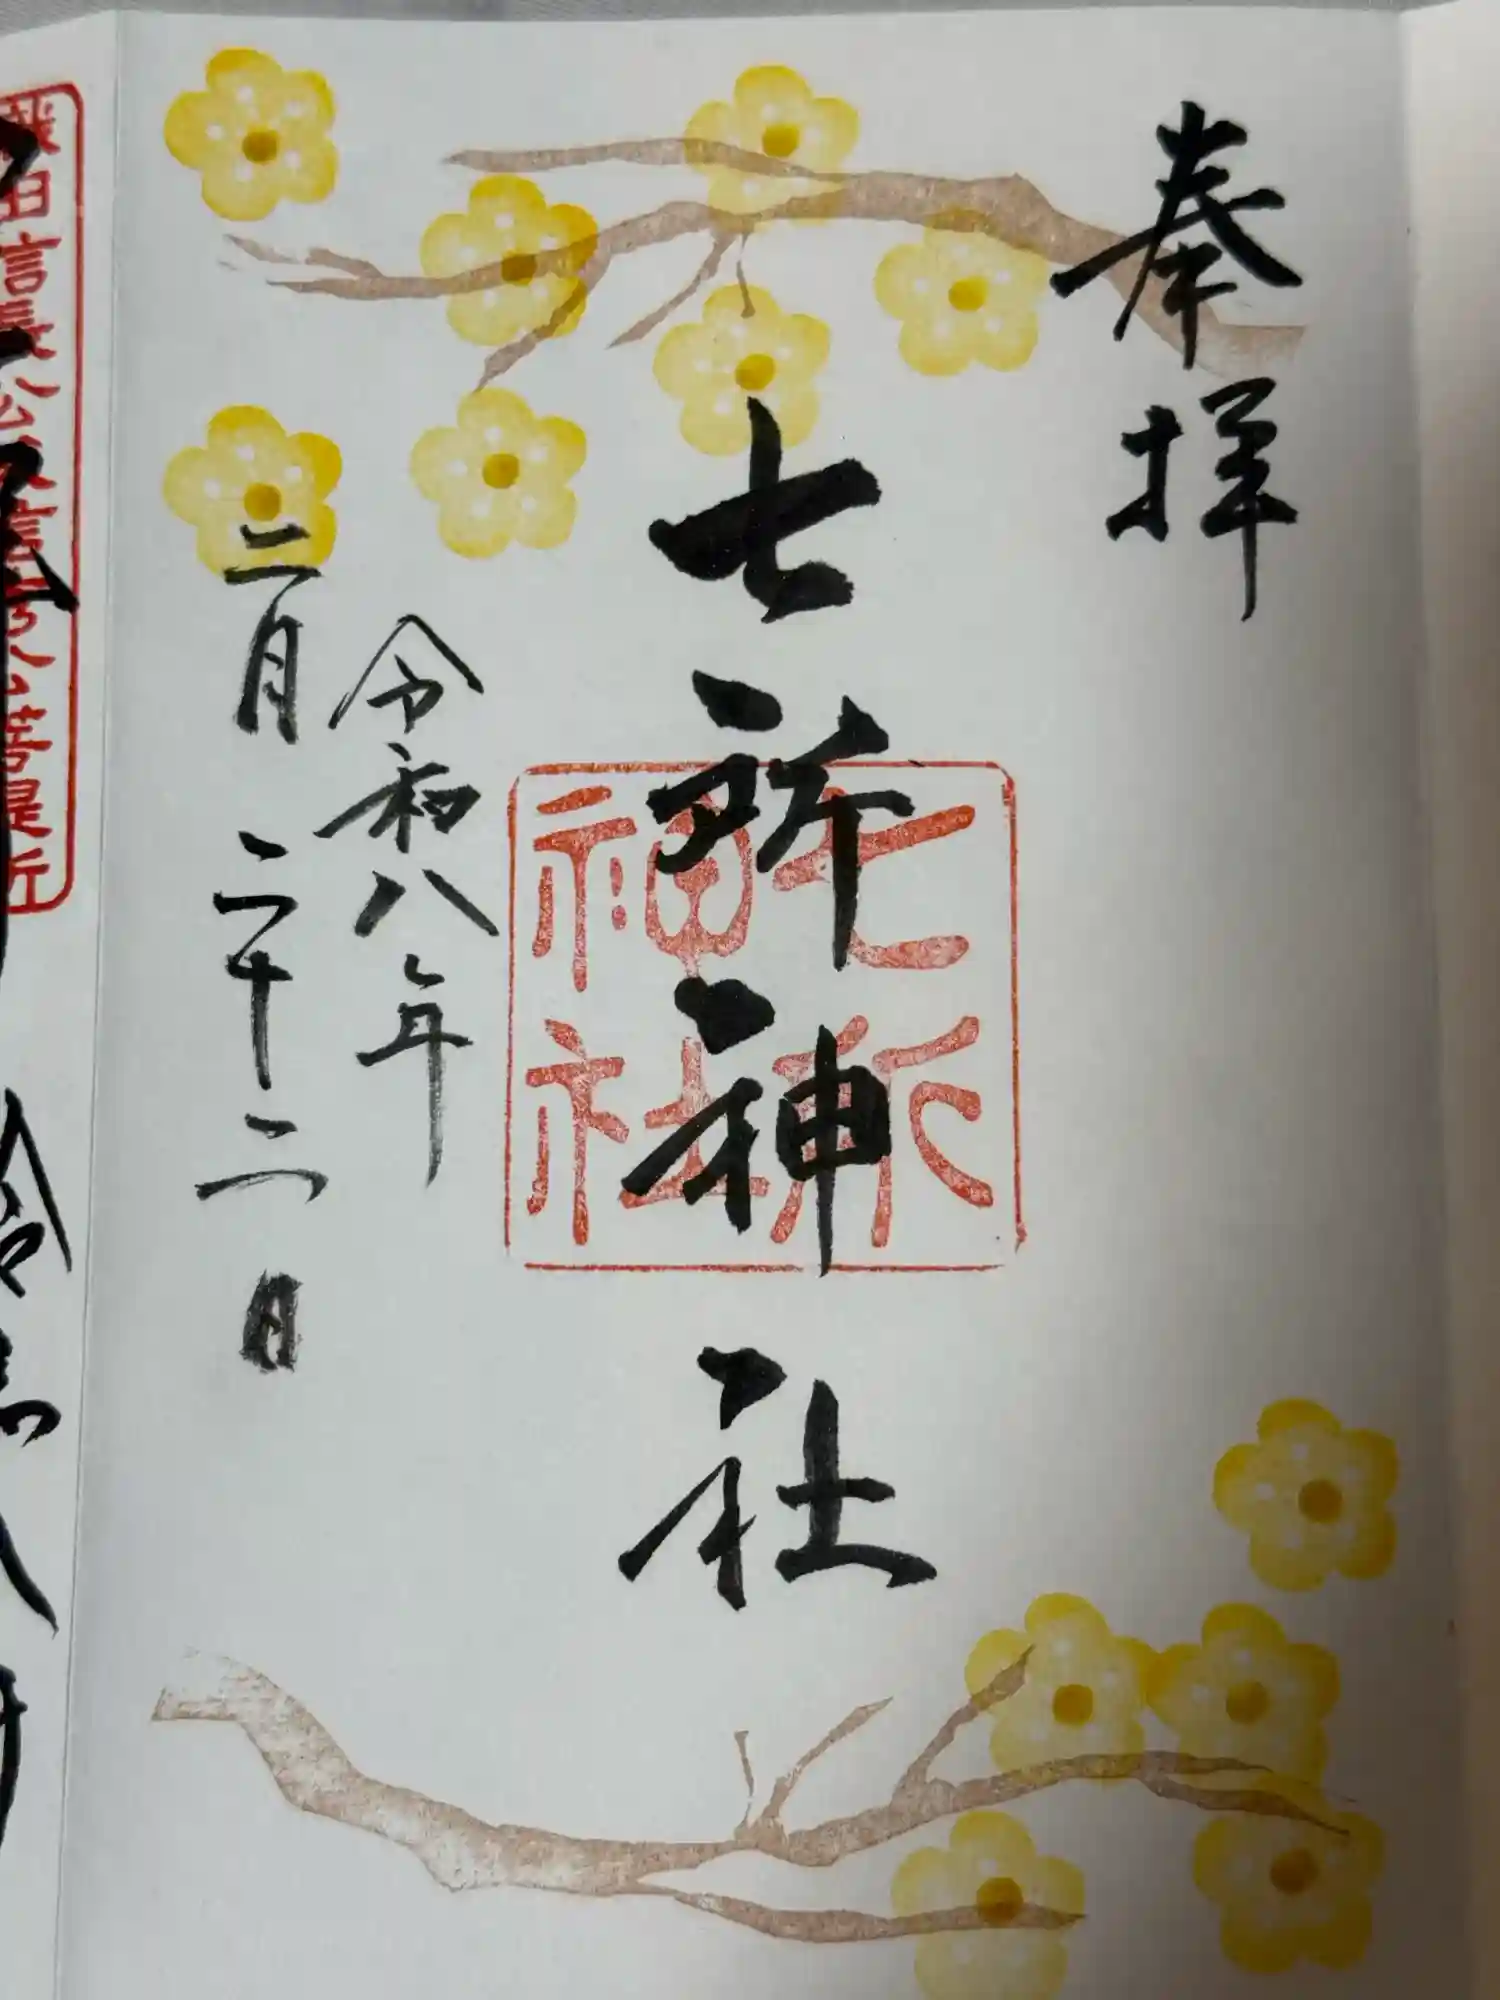 奉拝
七所神社
七所
神社
令和八年
二月二十二日
織田信長公
菩提所